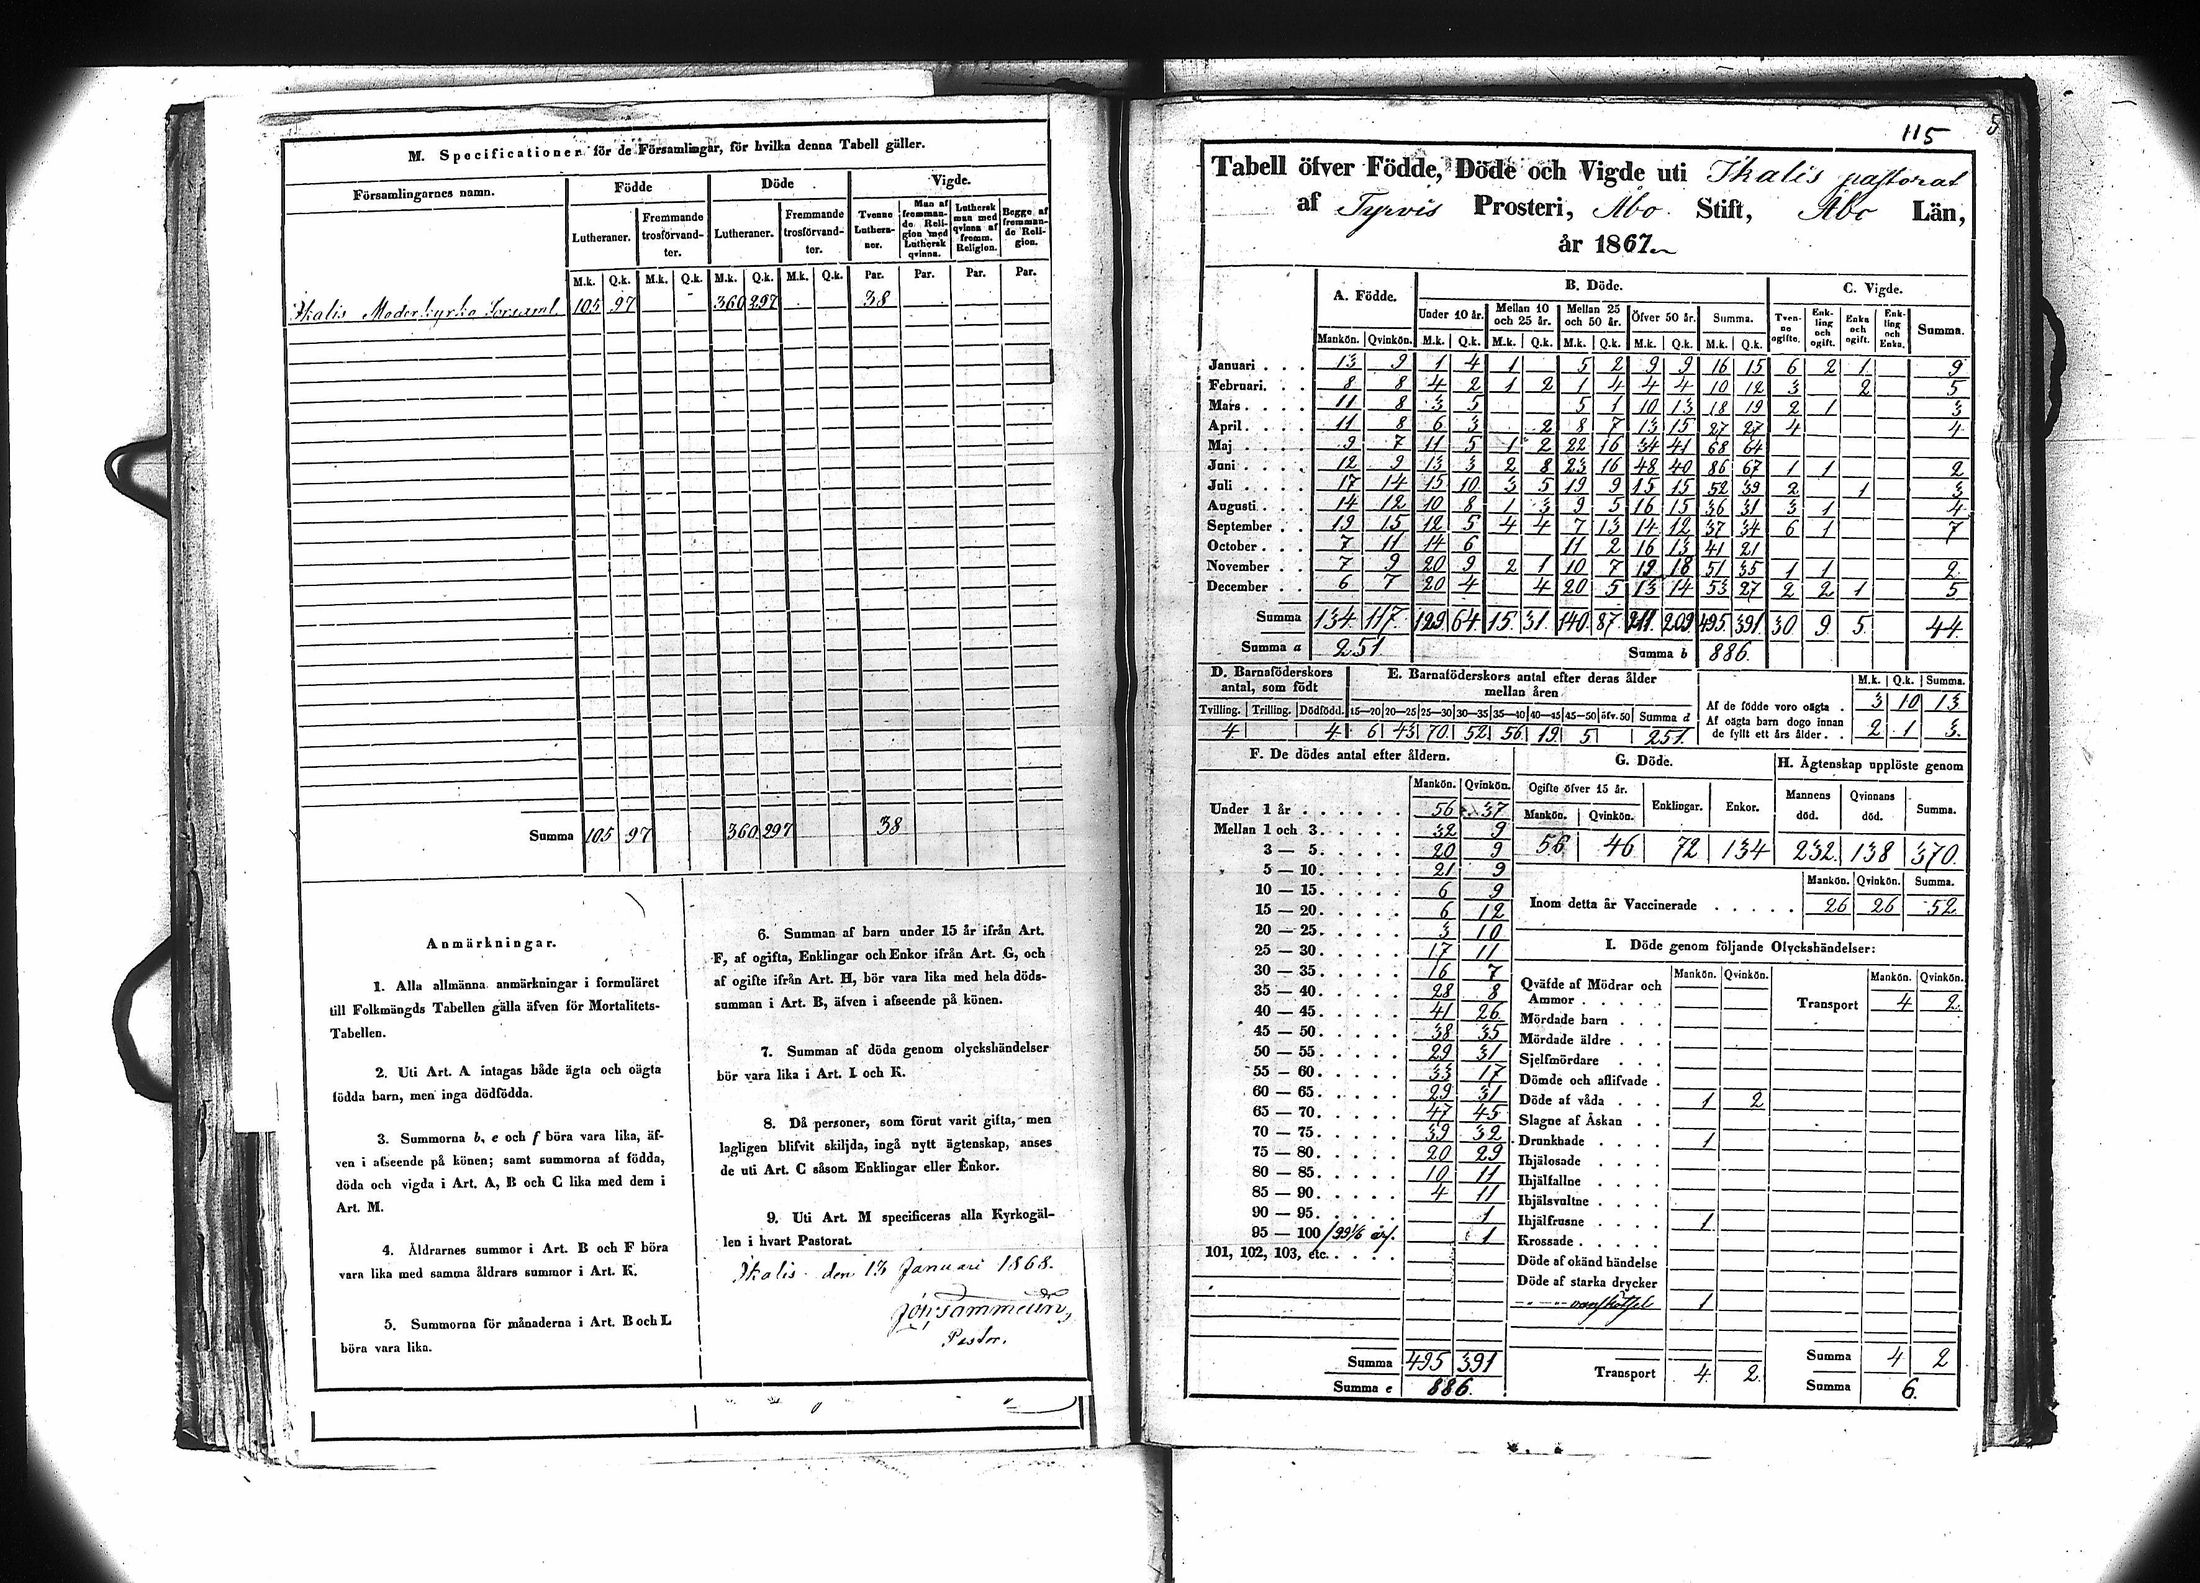 M. Specificationer för de Församlingar, för hvilka denna Tabell gäller.
Församlingarnes namn. Födde Döde Vigde.
Lutheraner. Fremmande trosförvandter. Lutheraner. Fremmande trosförvandter. Tvenne Lutheraner. Man af fremmande Religion med Luthersk qvinna. Luthersk man med qvinna af fremm. Religion. Begge af fremmande Religion.
M.k. Q.k. M.k. Q.k. M.k. Q.k. M.k. Q.k. Par. Par. Par. Par.
Ikalis Moderkyrko Församl 105 97 360 297 38
Summa 105 97 360 297 38
Anmärkningar.
1. Alla allmänna anmärkningar i formuläret
till Folkmängds Tabellen gälla äfven för Mortalitets-
Tabellen.
2. Uti Art. A intagas både ägta och oägta
födda barn, men inga dödfödda.
3. Summorna b, e och f böra vara lika, äf-
ven i afseende på könen; samt summorna af födda,
döda och vigda i Art. A, B och C lika med dem i
Art. M.
4. Åldrarnes summor i Art. B och F böra
vara lika med samma åldrars summor i Art. K.
5. Summorna för månaderna i Art. B och L
böra vara lika.
6. Summan af barn under 15 år ifrån Art.
F, af ogifta, Enklingar och Enkor ifrån Art. G, och
af ogifte ifrån Art. H, bör vara lika med hela döds-
summan i Art. B, äfven i afseende på könen.
7. Summan af döda genom olyckshändelser
bör vara lika i Art. I och K.
8. Då personer, som förut varit gifta, men
lagligen blifvit skiljda, ingå nytt ägtenskap, anses
de uti Art. C såsom Enklingar eller Enkor.
9. Uti Art. M specificeras alla Kyrkogäl-
len i hvart Pastorat.
Ikalis den 13 Januari 1868.
Pastor.
115
5
Tabell öfver Födde, Döde och Vigde uti Ikalis pastorat
af Tyrvis Prosteri, Åbo Stift, Åbo Län,
år 1867
A. Födde. B. Döde. C. Vigde.
Under 10 år. Mellan 10 och 25 år. Mellan 25 och 50 år. Öfver 50 år. Summa. Tvenne ogifte. Enkling och ogift. Enka och ogift. Enkling och Enka. Summa.
Mankön. Qvinkön. M.k. Q.k. M.k. Q.k. M.k. Q.k. M.k. Q.k. M.k. Q.k.
Januari 13 9 1 4 1 5 2 9 9 16 15 6 2 1 9
Februari 8 8 4 2 1 2 1 4 4 4 10 12 3 2 5
Mars 11 8 3 5 5 1 10 13 18 19 2 1 3
April 11 8 6 3 2 8 7 13 15 27 27 4 4
Maj 9 7 11 5 1 2 22 16 34 41 68 64
Juni 12 9 13 3 2 8 23 16 48 40 86 67 1 1 2
Juli 17 14 15 10 3 5 19 9 15 15 52 39 2 1 3
Augusti 14 12 10 8 1 3 9 5 16 15 36 31 3 1 4
September 19 15 12 5 4 4 7 13 14 12 37 34 6 1 7
October 7 11 14 6 11 2 16 13 41 21
November 7 9 20 9 2 1 10 7 19 18 51 35 1 1 2
December 6 7 20 4 4 20 5 13 14 53 27 2 2 1 5
Summa 134 117 129 64 15 31 140 87 211 209 495 391 30 9 5 44
Summa a 251 Summa b 886.
D. Barnaföderskors antal, som födt E. Barnaföderskors antal efter deras ålder mellan åren M.k. Q.k. Summa.
Tvilling. Trilling. Dödfödd. 15—20 20—25 25—30 30—35 35—40 40—45 45—50 öfv. 50 Summa d
4 4 6 43 70 52 56 19 5 251
Af de födde voro oägta 3 10 13
Af oägta barn dogo innan de fyllt ett års ålder 2 1 3.
F. De dödes antal efter åldern.
Mankön. Qvinkön.
Under 1 år 56 37
Mellan 1 och 3 32 9
3 — 5 20 9
5 — 10 21 9
10 — 15 6 9
15 — 20 6 12
20 — 25 3 10
25 — 30 17 11
30 — 35 16 7
35 — 40 28 8
40 — 45 41 26
45 — 50 38 35
50 — 55 29 31
55 — 60 33 17
60 — 65 29 31
65 — 70 47 45
70 — 75 39 32
75 — 80 20 29
80 — 85 10 11
85 — 90 4 11
90 — 95 1
95 — 100 /99 1/6 år/. 1
101, 102, 103, etc.
Summa 495 391
Summa e 886.
G. Döde. H. Ägtenskap upplöste genom
Ogifte öfver 15 år. Enklingar. Enkor. Mannens död. Qvinnans död. Summa.
Mankön. Qvinkön.
56 46 72 134 232 138 370
Mankön. Qvinkön. Summa.
Inom detta år Vaccinerade 26 26 52
I. Döde genom följande Olyckshändelser:
Mankön. Qvinkön. Mankön. Qvinkön.
Qväfde af Mödrar och Ammor Transport 4 2
Mördade barn
Mördade äldre
Sjelfmördare
Dömde och aflifvade
Döde af våda 1 2
Slagne af Åskan
Drunknade 1
Ihjälosade
Ihjälfallne
Ihjälsvultne
Ihjälfrusne 1
Krossade
Döde af okänd händelse
Döde af starka drycker
vanskötsel 1
Transport 4 2
Summa 4 2
Summa 6.